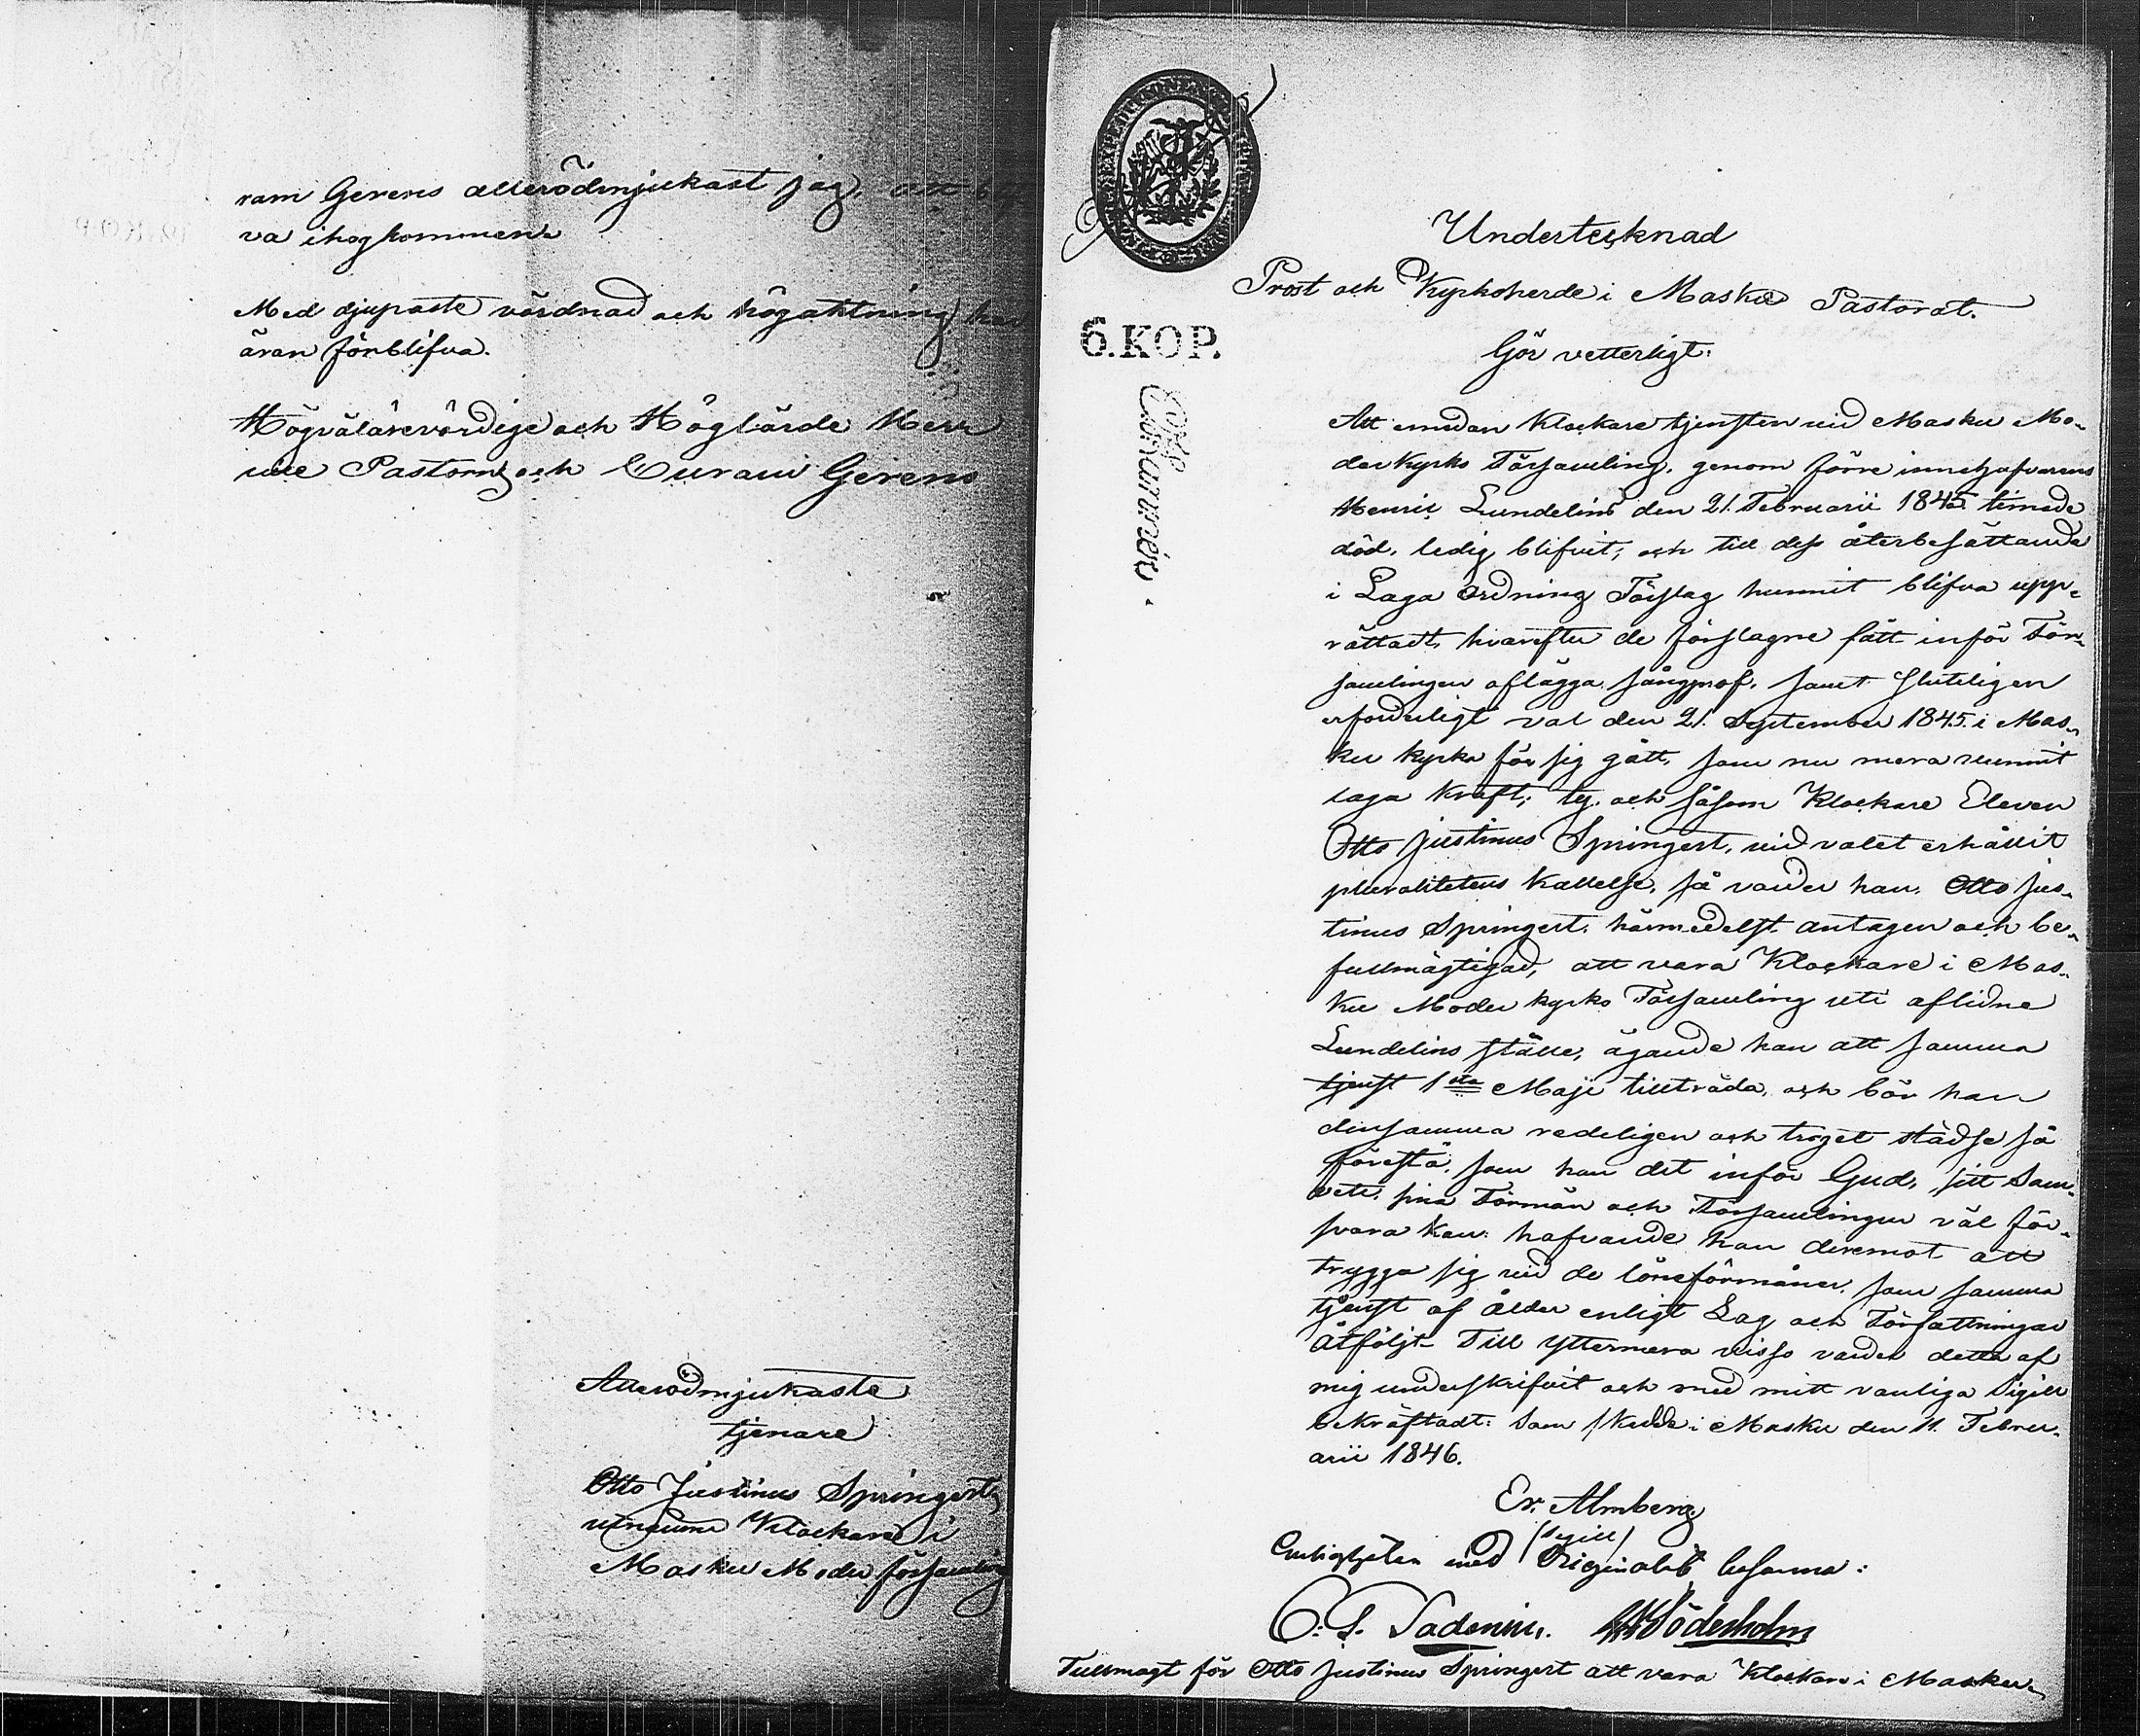 ram Gerens allerödmjukast jag, att b
va ihogkommen.
Med djupaste vördnad och högaktning har
äran förblifva.
Högvälärevördige och Höglärde Herr
ine Pastorns och Curam Gerens
Allerödmjukaste
tjenare
Otto Justinus Springert
utnämnd Klockare i
Masku Moder församling
6. KOP.
Undertecknad
Prost och Kyrkoherde i Masku Pastorat.
Gör vetterligt:
Att emedan Klockare tjensten vid Masku Mo-
derkyrko Församling, genom förre innehafvarens
Henric Lundelins den 21. Februarii 1845 timade
död, ledig blifvit; och till dess återbesättande
i Laga Ordning Förslag hunnit blifva upp-
rättadt, hvarefter de förslagne fått inför För-
samlingen aflägga sångprof, samt sluteligen
erforderligt val den 21. September 1845. i Mas-
ku kyrka för sig gått, som nu mera vunnit
laga kraft; ty. och såsom Klockare Eleven
Otto Justinus Springert, vid valet erhållit
pluralitetens kallelse, så varder han, Otto Jus-
tinus Springert, härmedelst antagen och be-
fullmägtigad, att vara Klockare i Mas-
ku Moder kyrko Församling uti aflidne
Lundelins ställe, ägande han att samma
tjenst 1sta Maji tillträda, och bör han
densamma redeligen och troget städse så
förestå, som han det inför Gud, sitt Sam-
vete, sina Förmän och Församlingen väl för-
svara kan; hafvande han deremot att
trygga sig vid de löneförmåner, som samma
tjenst af ålder enligt Lag och Författningar
åtföljt. Till yttermera visso varder detta af
mig underskrifvit och med mitt vanliga Sigill
bekräftadt: Som skedde i Masku den 11. Febru-
arii 1846.
Er. Almberg
(Sigill)
Enligheten med Originalet besanna:
C. S. Sadenius. Söderholm
Fullmagt för Otto Justinus Springert att vara Klockare i Masku